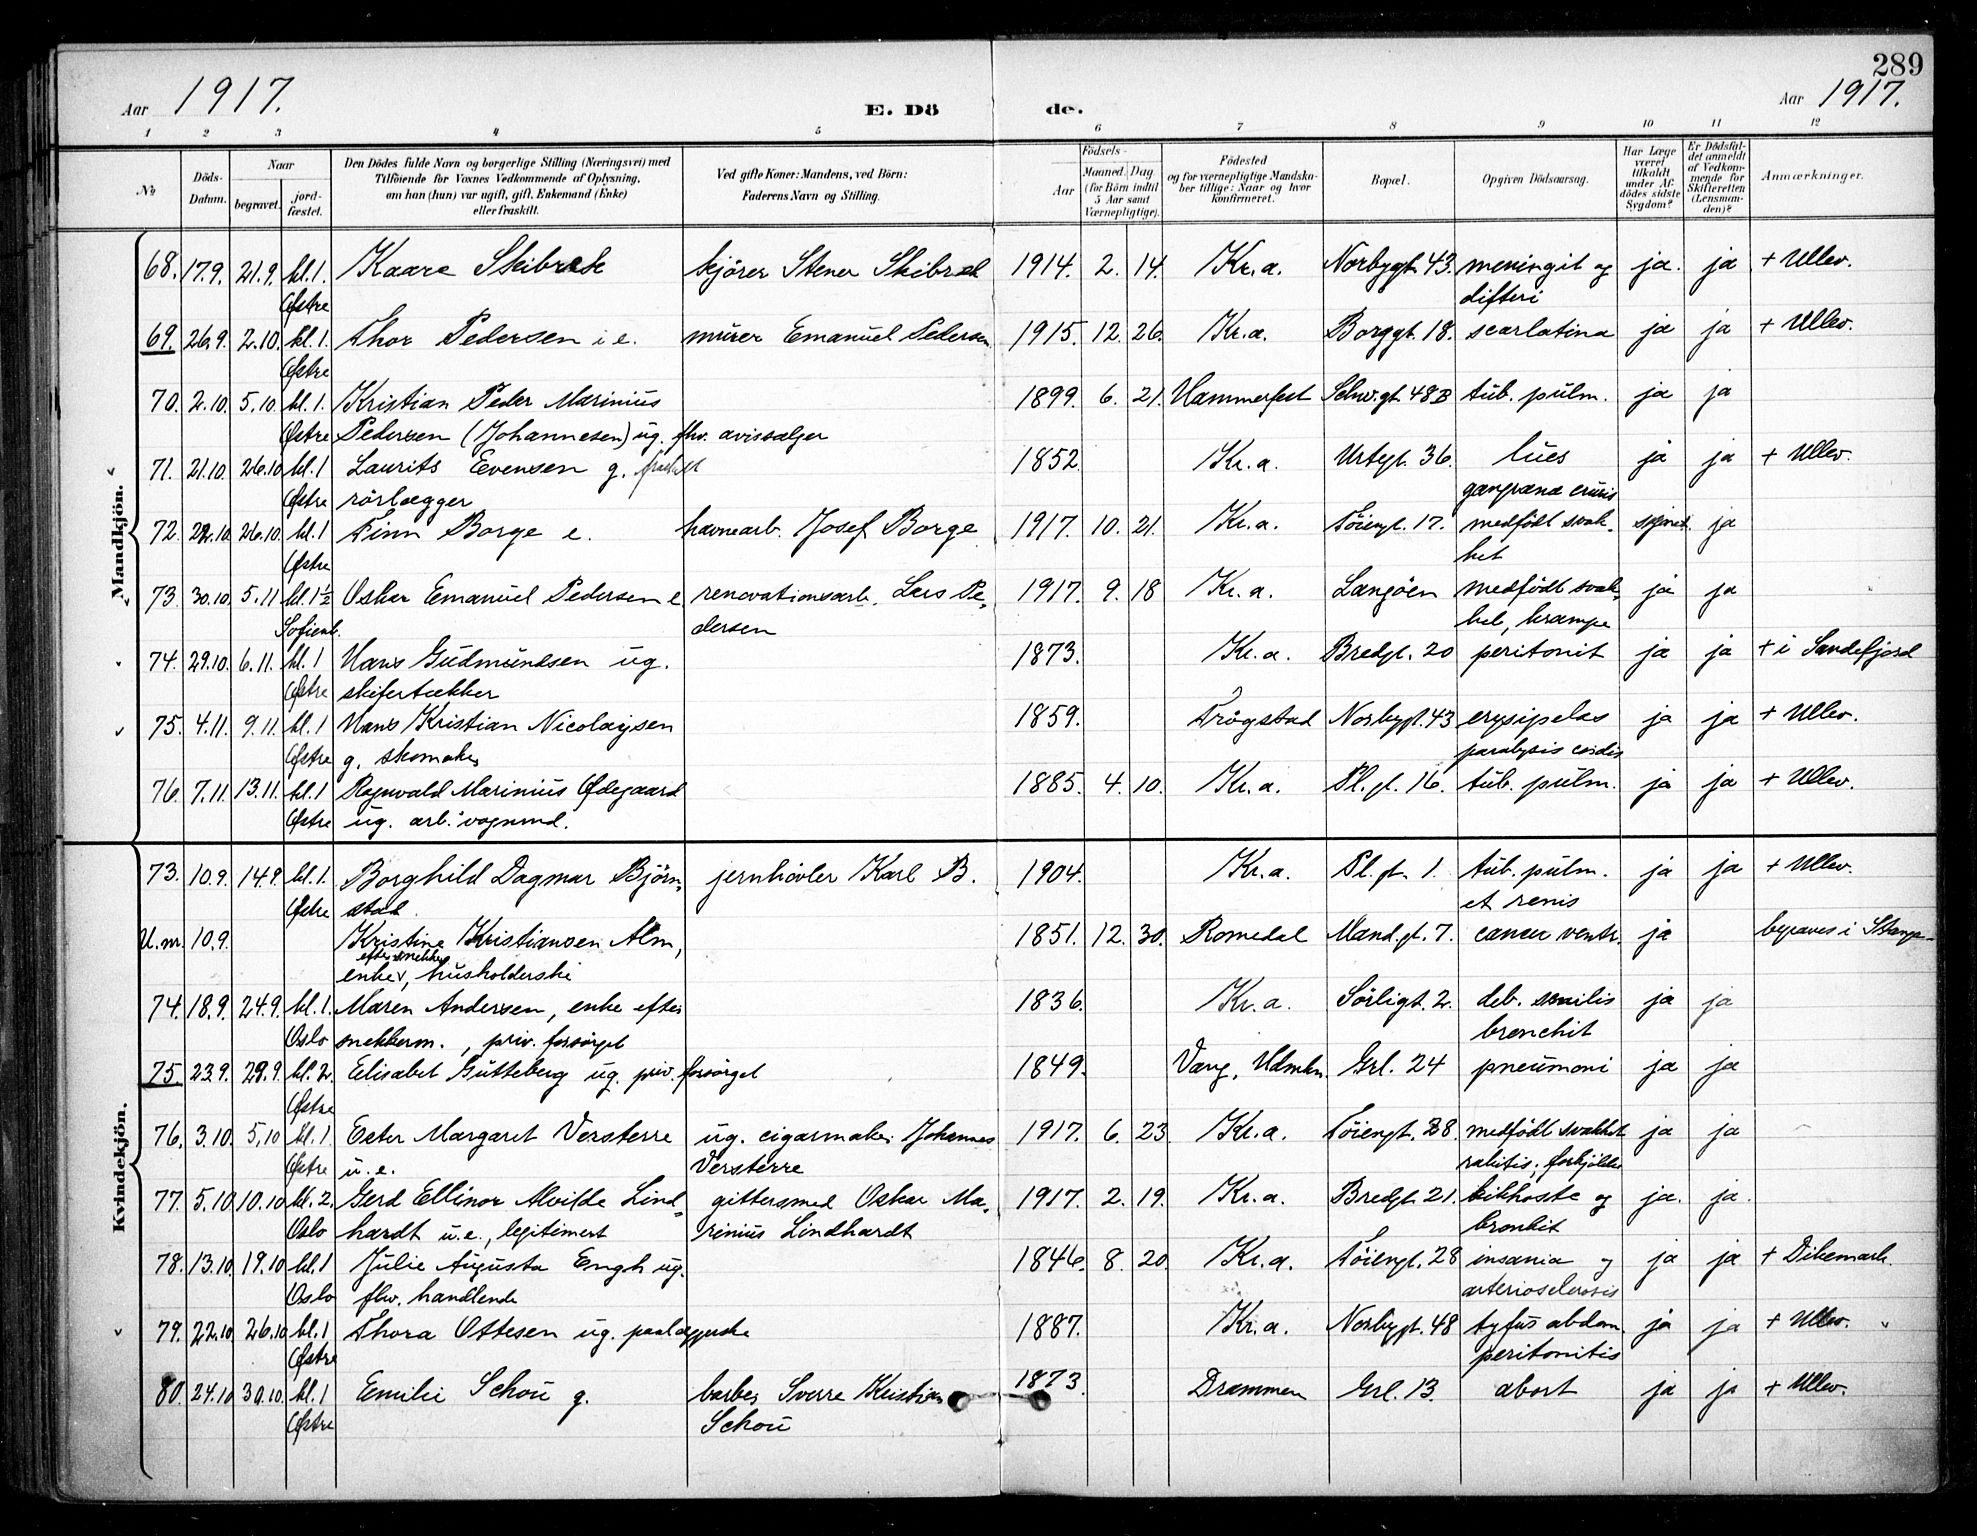 289
Aar 1917. E. Dö de. Aar 1917.
1 2 3 4 5 6 7 8 9 10 11 12
No
Döds-Datum.
Naar
begravet.
jord-fæstet.
Den Dödes fulde Navn og borgerlige Stilling (Næringsvei) med
Tilföiende for Voxnes Vedkommende af Oplysning,
om han (hun) var ugift, gift, Enkemand (Enke)
eller fraskilt.
Ved gifte Koner: Mandens, ved Börn:
Faderens Navn og Stilling.
Födsels-
Aar
Maaned. Dag
(for Börn indtil
5 Aar samt
Værnepligtige).
Födested
og for værnepligtige Mandska-
ber tillige: Naar og hvor
konfirmeret.
Bopæl.
Opgiven Dödsaarsag.
Har Læge
været
tilkaldt
under Af-
dödes sidste
Sygdom?
Er Dödsfal-
det anmeldt
af Vedkom-
mende for
Skifteretten
(Lensman-
den)?
Anmærkninger.
Mandkjön.
68. 17.9. 21.9. kl.1. Kaare Skibrek kjörer Stener Skibrek 1914. 2. 14. Kr.a. Norbygt. 43. meningit og ja. ja + Ullev.
Østre difteri
69. 26.9. 2.10. kl.1. Thor Pedersen i e. murer Emanuel Pedersen 1915. 12. 26. Kr.a. Borggt. 18. scarlatina ja ja + Ullev.
Østre
70. 2.10. 5.10. kl.1. Kristian Peder Marinius 1899. 6. 21. Hammerfest Schw.gt. 48B tub. pulm. ja ja
Østre Pedersen (Johannesen) ug. fhv. avissælger
71. 21.10 26.10 kl.1 Laurits Evensen g. fraskilt 1852. Kr.a. Urtegt. 36. lues ja ja + Ullev.
Østre rörlægger gangræna cruris
72. 22.10 26.10. kl.1 Finn Borge e. havnearb. Josef Borge 1917. 10. 21. Kr.a. Töiengt. 17. medfödt svak- ja
Østre het
73. 30.10. 5.11 kl.1½ Oskar Emanuel Pedersen e renovationsarb. Lars Pe- 1917. 9. 18 Kr.a. Langöen medfödt svak- ja ja
Sofienb. dersen het, krampe
74. 29.10. 6.11. kl.1 Hans Gudmundsen ug. 1873. Kr.a. Bredgt. 20 peritonit ja ja + i Sandefjord
Østre skifertækker
75. 4.11. 9.11. kl.1 Hans Kristian Nicolaysen 1859. Trögstad Norbygt. 43 erysipelas ja ja + Ullev.
Østre g. skomaker paralysis cordis
76. 7.11. 13.11. kl.1 Ragnvald Marinius Ødegaard 1885. 4. 10. Kr.a. Pl.gt. 16. tub. pulm. ja ja + Ullev.
Østre ug. arb. vognmd.
Kvindekjön.
73. 10.9. 14.9. kl.1. Borghild Dagmar Björn- jernhövler Karl B. 1904. Kr.a. Pl.gt. 1. tub. pulm. ja ja + Ullev.
Østre stad. et renis
U.nr. 10.9. Kristine Kristiansen Alm, 1851. 12. 30. Romedal Mand.gt. 7. cancer ventr. ja begraves i Stange
efter snekker
enke v, husholderske
74. 18.9. 24.9. kl.1. Maren Andersen, enke efter 1836. Kr.a. Sörligt. 2. deb. senilis ja ja
Oslo snekkerm., priv. forsörget bronchit
75. 23.9. 29.9. kl.2. Elisabet Gutteberg ug. priv. forsörget 1849. Vang, Hdmkn. Grl. 24 pneumoni ja ja
Østre
76. 3.10. 5.10 kl.1 Ester Margaret Versterre ug. cigarmaker Johannes 1917. 6. 23 Kr.a. Töiengt. 28. medfödt svakhet ja ja
Østre u.e. Versterre rakitis, forkjölelse
77. 5.10 10.10 kl.2. Gerd Ellinor Alvilde Lind- gittersmed Oskar Ma- 1917. 2. 19. Kr.a. Bredgt. 21. kikhoste og ja. ja.
Oslo hardt u.e., legitimert rinius Lindhardt bronkit
78. 13.10. 19.10 kl.1 Julie Augusta Engh ug. 1846. 8. 20. Kr.a. Töiengt. 28 insania og ja ja + Dikemark.
Oslo fhv. handlende arteriosclerosis
79. 22.10 26.10 kl.1 Thora Ottesen ug. paalæggerske 1887. Kr.a. Norbygt. 48 tyfus abdom. ja ja + Ullev.
Østre peritonitis
80. 24.10 30.10. kl.1 Emilie Schou g. barber Sverre Kristian 1873. Drammen Grl. 13. abort ja ja + Ullev.
Østre Schou